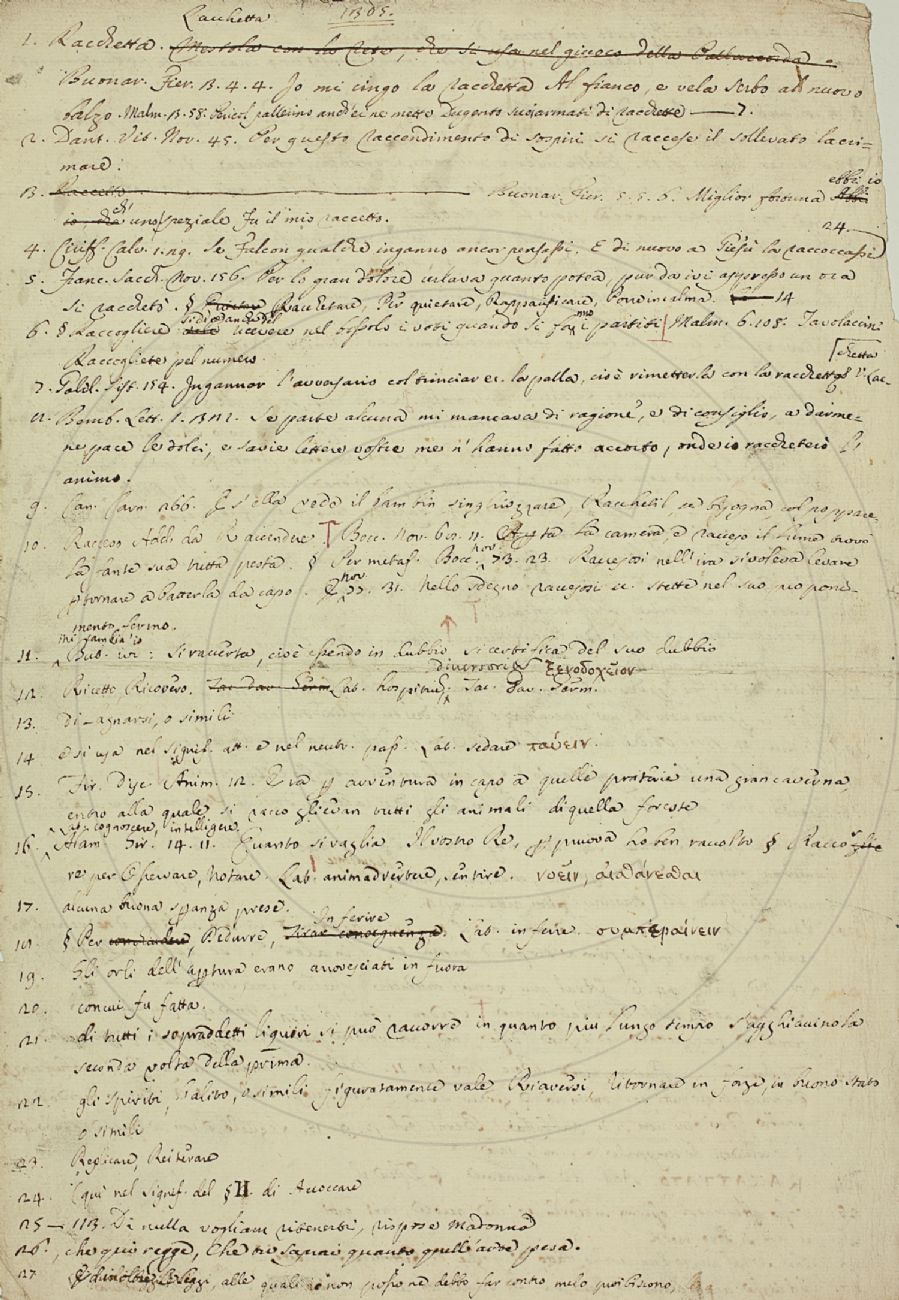 Lacchetta 1305.
1. Racchetta. Mestola con la rete, che si usa nel giuoco della Pallaccorda.
Buonar. Fier. 3. 4. 4. Io mi cingo la racchetta Al fianco, e vela serbo al nuovo
balzo. Malm. 3. 58. pallerino anch'ei ne mette Dugento suoi armati di racchette
2. Dant. Vit. Nov. 45. Per questo raccendimento di sospiri si raccese il sollevato lacri=
mare:
3. Raccetto Buonar. Fier. 5. 5. 6. Miglior fortuna ebbi io
ch' uno speziale Fu il mio raccetto.
24.
4. Ciriff. Calv. Se Falcon qualche inganno ancor pensassi, E di nuovo a Piessi la raccoccassi
5. Franc. Sacch. Nov. 156. Per lo gran dolore urlava quanto potea, pur da ivi appresso un ora
si racchetò. § Racchetare, Per quietare, Rappacificare, Porre in calma. 14
6. § Raccogliere si dice anche del ricevere nel bossolo i voti quando si fanno i partiti Malm. 6. 108. Tavolaccini
Raccogliete pel numero.
7. Galil. Sist. 154. Ingannar l'avversario col trinciar ec. la palla, cioè rimetterla con la racchetta § V. Lac-
chetta
8. Bemb. Lett. Se parte alcuna mi mancava di ragione, e di consiglio, a darme-
ne pace le dolci, e savie lettere vostre me n'hanno fatto accorto, onde io raccheterò l'
animo.
9. Can. Carn. 266. E s'ella vede il bambin singhiozzare, Racchetil se bisogna col poppare.
10. Racceso Add. da Raccendere Bocc. Nov. 60. 11. la camera, e racceso il lume trovò
la fante sua tutta pesta. § Per metaf. Bocc. nov. 73. 23. Raccesosi nell'ira si voleva levare
p tornare a batterla da capo. E nov. 77. 31. Nello sdegno raccesosi ec. stette nel suo proponi-
mento fermo.
mi cambia io
11. But. ivi: si raccerta, cioè essendo in dubbio, si certifica del suo dubbio
diversorium, ξενοδοχεῖον
12. Ricetto, Ricovero. Lat. hospitium, Tac. Dav. Germ.
13. Di Lagnarsi, o simili
14. e si usa nel signif. att. e nel neutr. pass. Lat. sedare παύειν.
15. Fir. Disc. Anim. 12. Era p avventura in capo a quelle praterie una gran caverna,
entro alla quale si raccoglievan tutti gli animali di quella foreste
cognoscere, intelligere
16. Alam. Gir. 14. 11. Quanto si vaglia Il vostro Re, p pruova ho ben raccolto § Racco glie
re per Osservare, Notare. Lat. animadvertere, sentire. νοεῖν, αἰσθάνεσθαι
17. alcuna buona speranza prese.
Inferire
18. § Per concludere, Dedurre, Tirar conseguenza. Lat. inferre. συμπεραίνειν
19. Gli orli dell'apertura erano arrovesciati in fuora
20. concui fu fatta.
21. di tutti i sopraddetti liquori si può raccorre in quanto più lungo tempo s'agghiaccino la
seconda volta della prima.
22. gli spiriti, l'alito, o simili figuratamente vale Riaversi, Ritornare in forze, in buono stato
o simili
23. Replicare, Reiterare
24. Qui nel signif. del § II. di Accoccare
25 — 113. Di nulla vogliam ritenerti, rispose Madonna
26. , che qui regge, Che tu saprai quanto quell'arte pesa.
27 leggi, alle quali io non posso ne debbo far contro melo proibiscono,